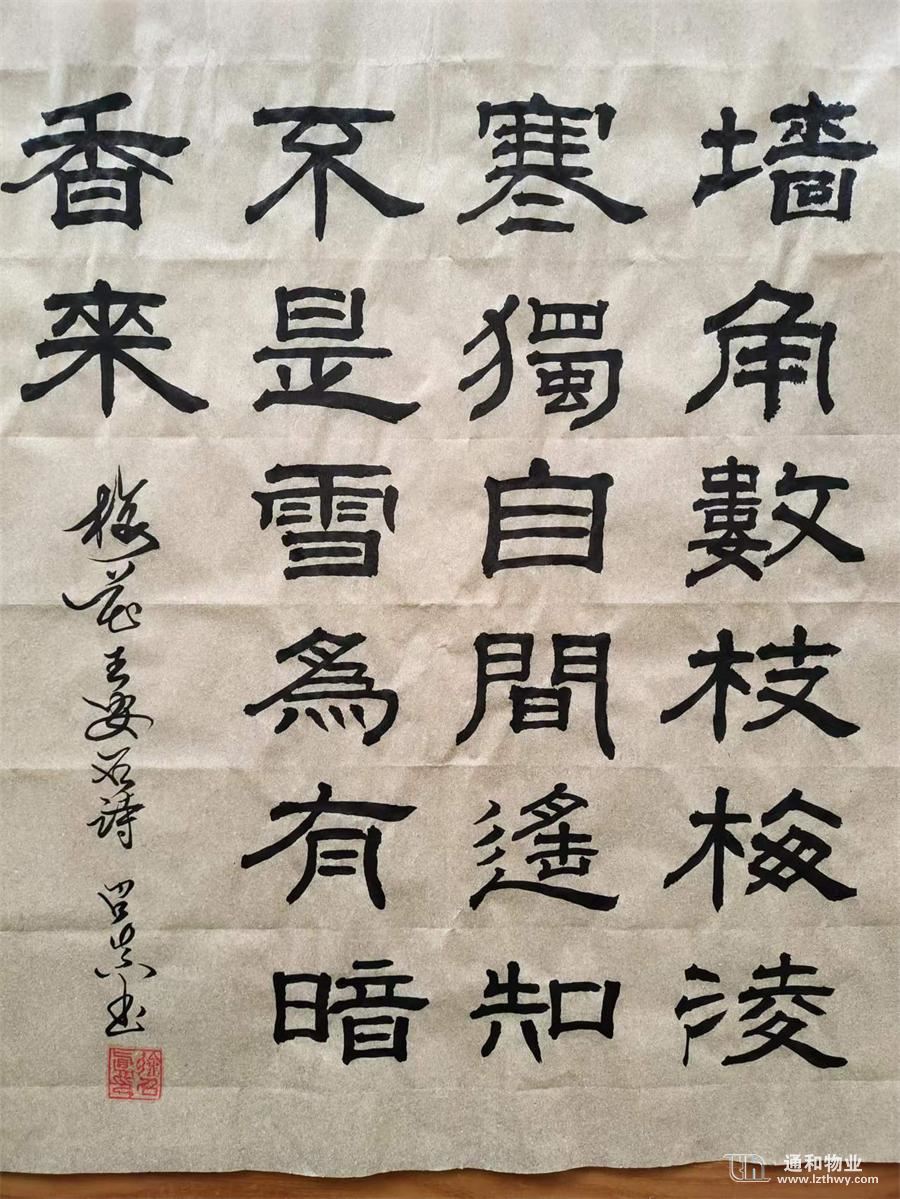 墻角數枝梅凌
寒獨自間遙知
不是雪為有暗
香來
梅花王安石詩 召真书
通和物业
www.lzthwy.com